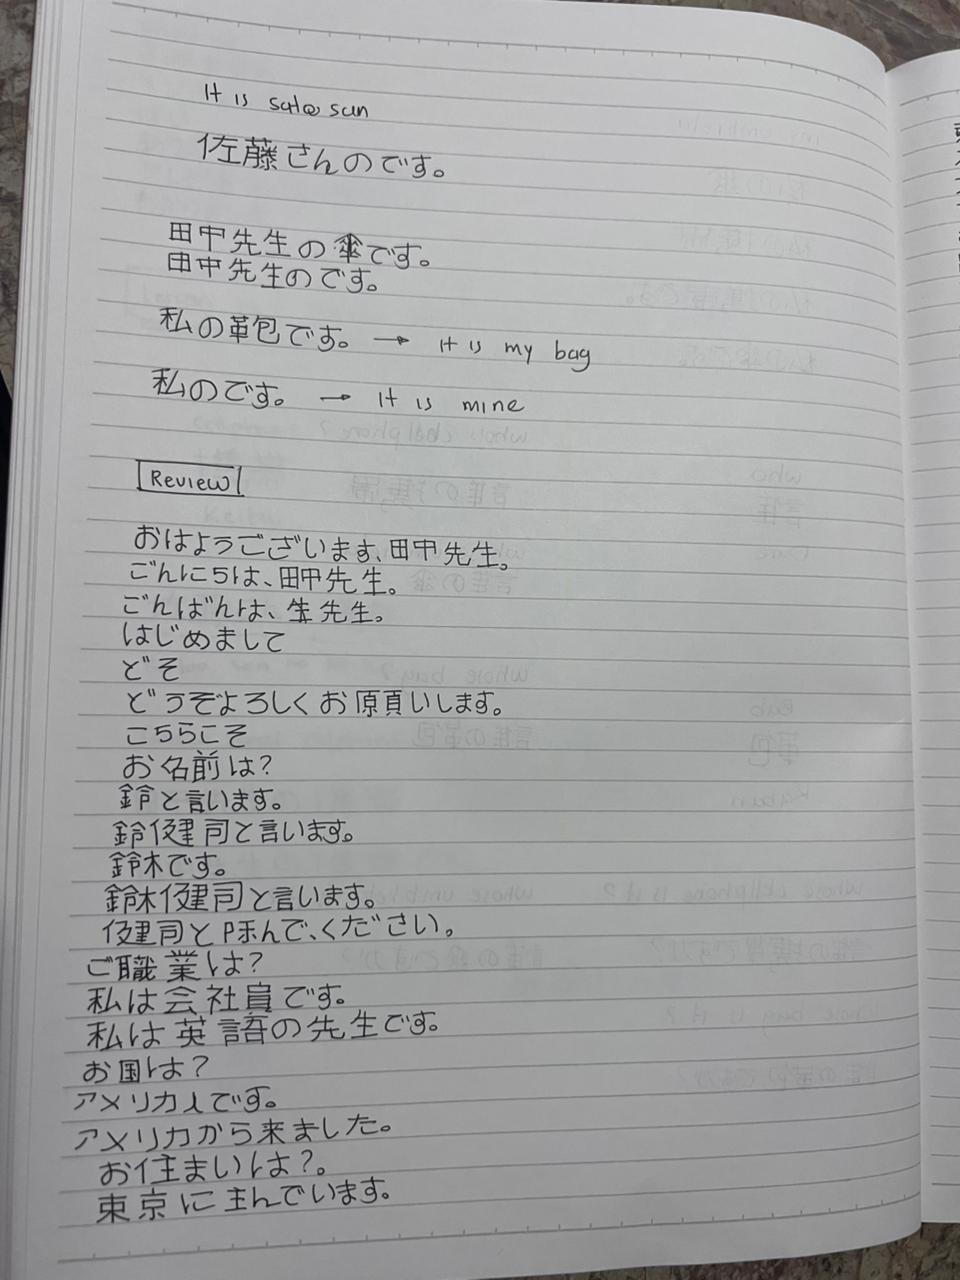 It is sato san
佐藤さんのです。
田中先生の傘です。
田中先生のです。
私の革包です。 → it is my bag
私のです。 → it is mine
Review
おはようございます、田中先生。
ごんにちは、田中先生。
ごんばんは、先生。
はじめまして
どそ
どうぞよろしくお原頁いします。
こちらこそ
お名前は?
鈴と言います。
鈴健司と言います。
鈴木です。
鈴木健司と言います。
健司と呼んで、ください。
ご職業は?
私は会社員です。
私は英語の先生です。
お国は?
アメリカ人です。
アメリカから来ました。
お住まいは?。
東京に主んでいます。